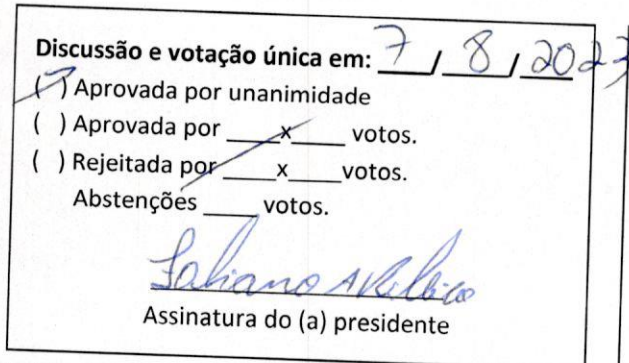 Discussão e votação única em: 7 / 8 / 2023
( ) Aprovada por unanimidade
( ) Aprovada por ____x____ votos.
( ) Rejeitada por ____x____votos.
Abstenções ____ votos.
Fabiano A
Assinatura do (a) presidente